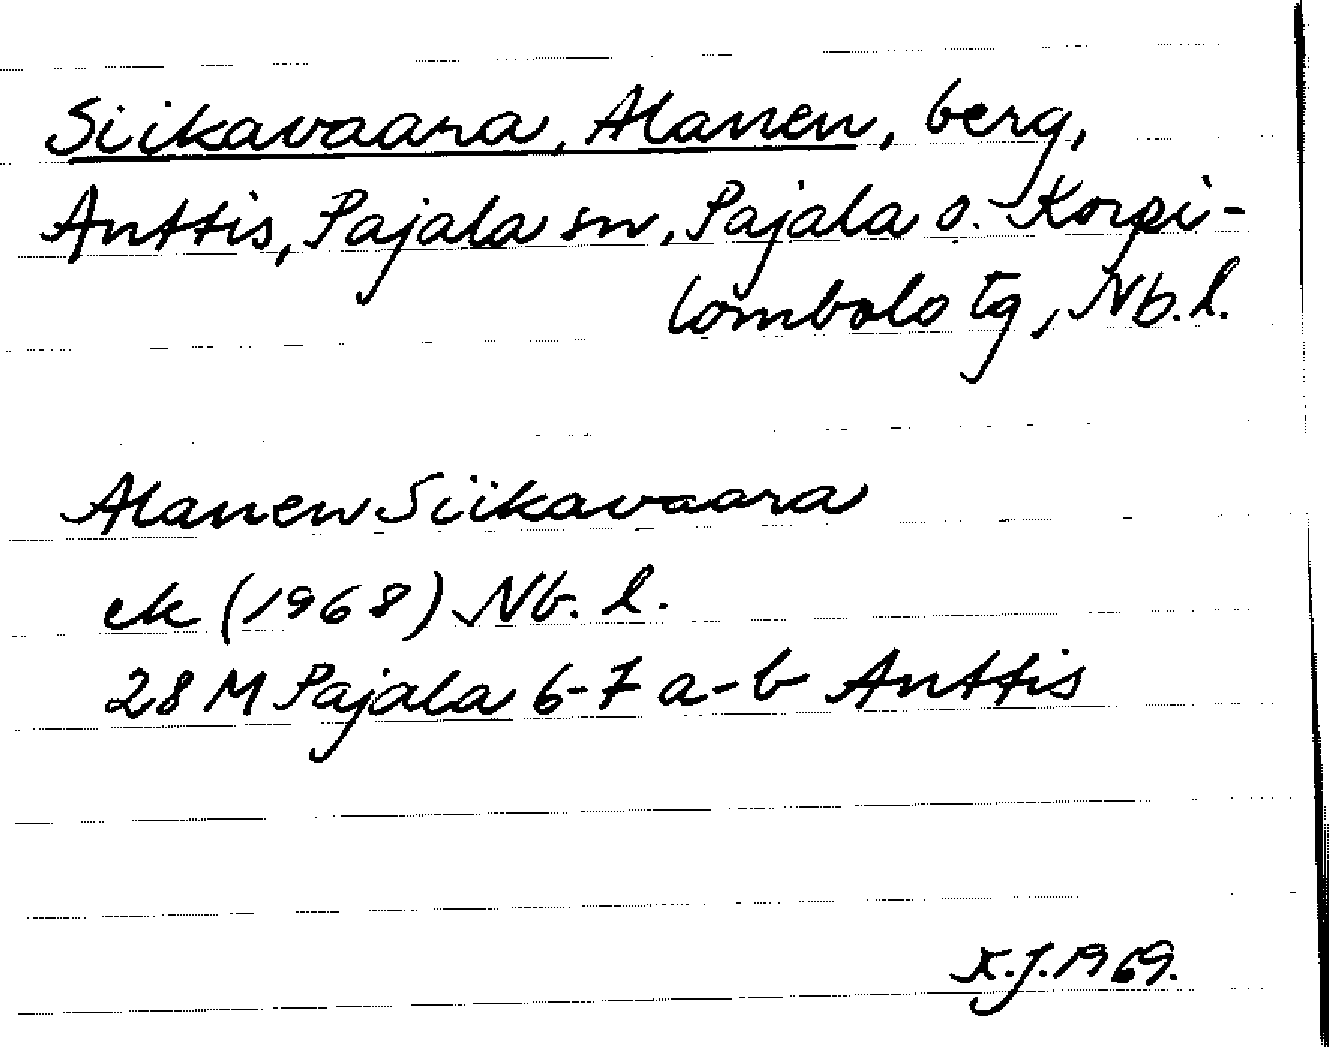 Siikavaara, Alanen, berg,
Anttis, Pajala sn, Pajala o. Korpi-
lombolo tg, Nb. l.
Alanen Siikavaara
ek (1968) Nb. l.
28 M Pajala 6-7 a-b Anttis
K.J. 1969.